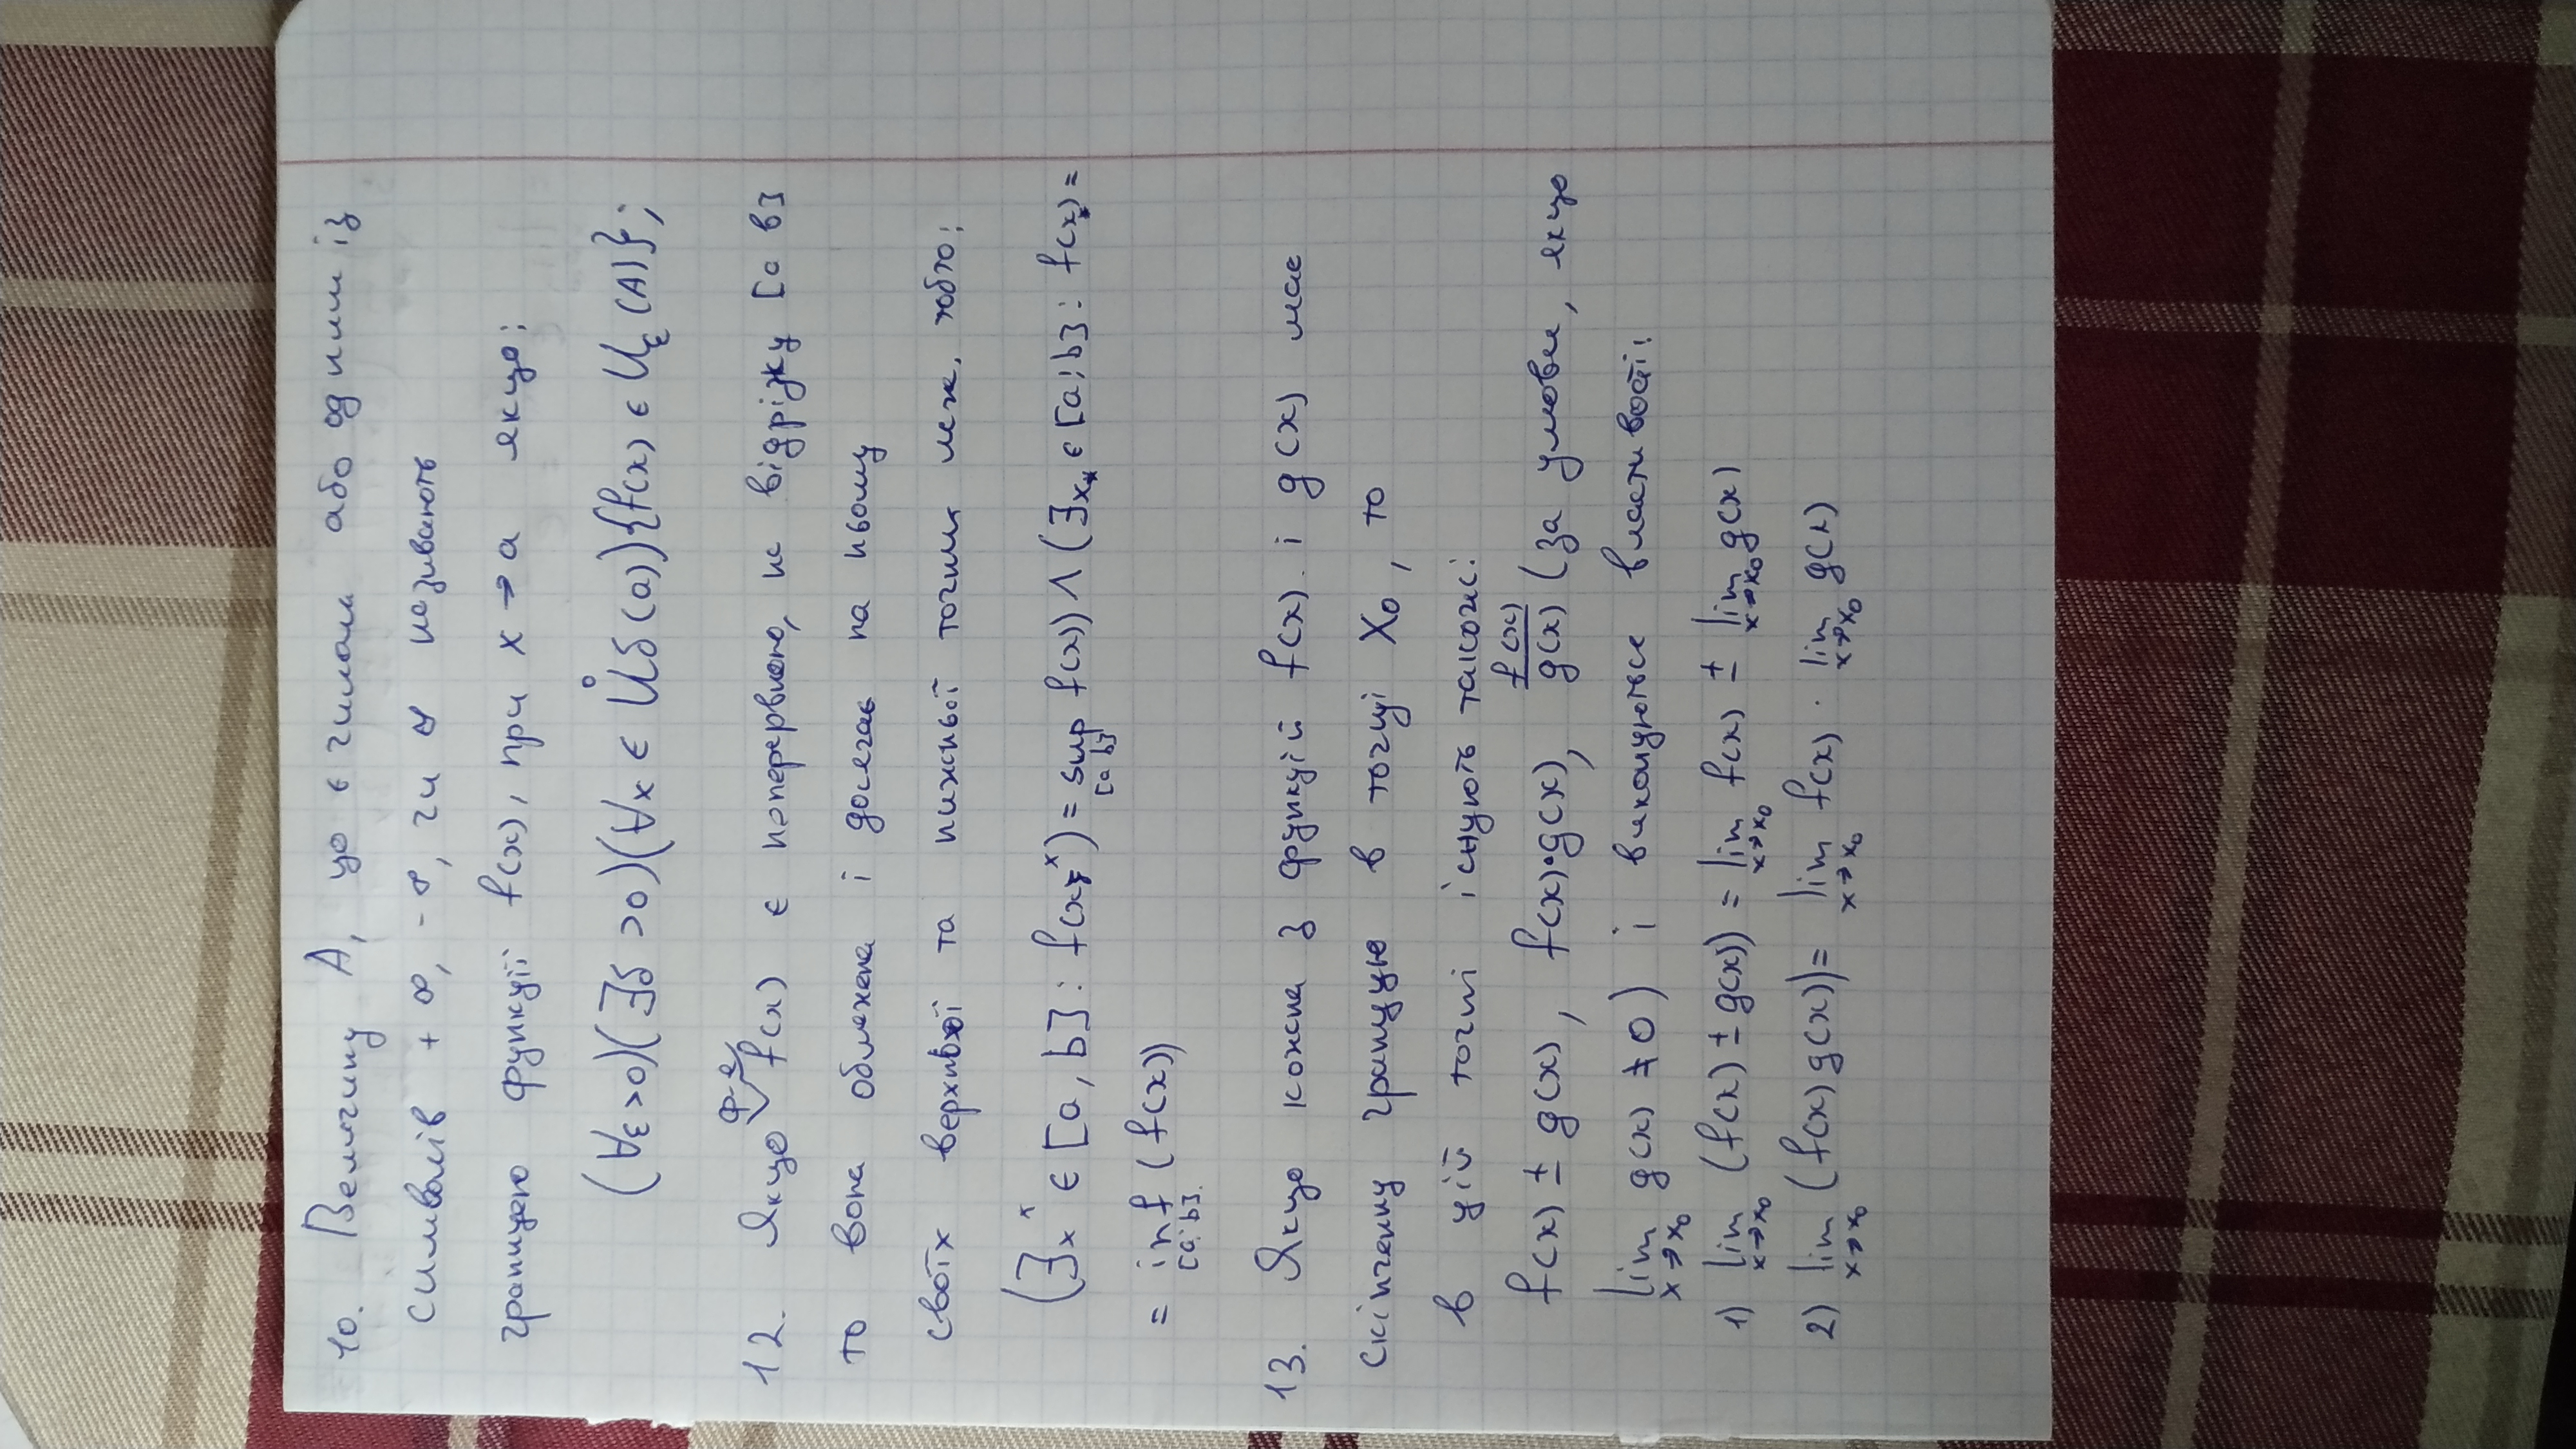 10. Величину A, що є числом або одним із
символів +∞, -∞, чи ∞ називають
границею функції f(x), при x → a якщо:
(∀ε>0)(∃δ>0)(∀x ∈ Ůδ(a)){f(x) ∈ Uε(A)};
ф-я
12. Якщо f(x) є неперервною, на відрізку [a b]
то вона обмежена і досягає на ньому
своїх верхньої та нижньої точних меж. тобто:
(∃x* ∈ [a, b] : f(x*) = sup f(x)) ∧ (∃x* ∈ [a; b] : f(x*) =
[a b]
= inf (f(x))
[a; b].
13. Якщо кожна з функцій f(x) і g(x) має
скінченну границю в точці x₀, то
в цій точці існують також:
f(x) ± g(x), f(x)·g(x), f(x)/g(x) (за умови, якщо
lim g(x) ≠ 0) і виконуються властивості:
x→x₀
1) lim (f(x) ± g(x)) = lim f(x) ± lim g(x)
x→x₀ x→x₀ x→x₀
2) lim (f(x) g(x)) = lim f(x) · lim g(x)
x→x₀ x→x₀ x→x₀